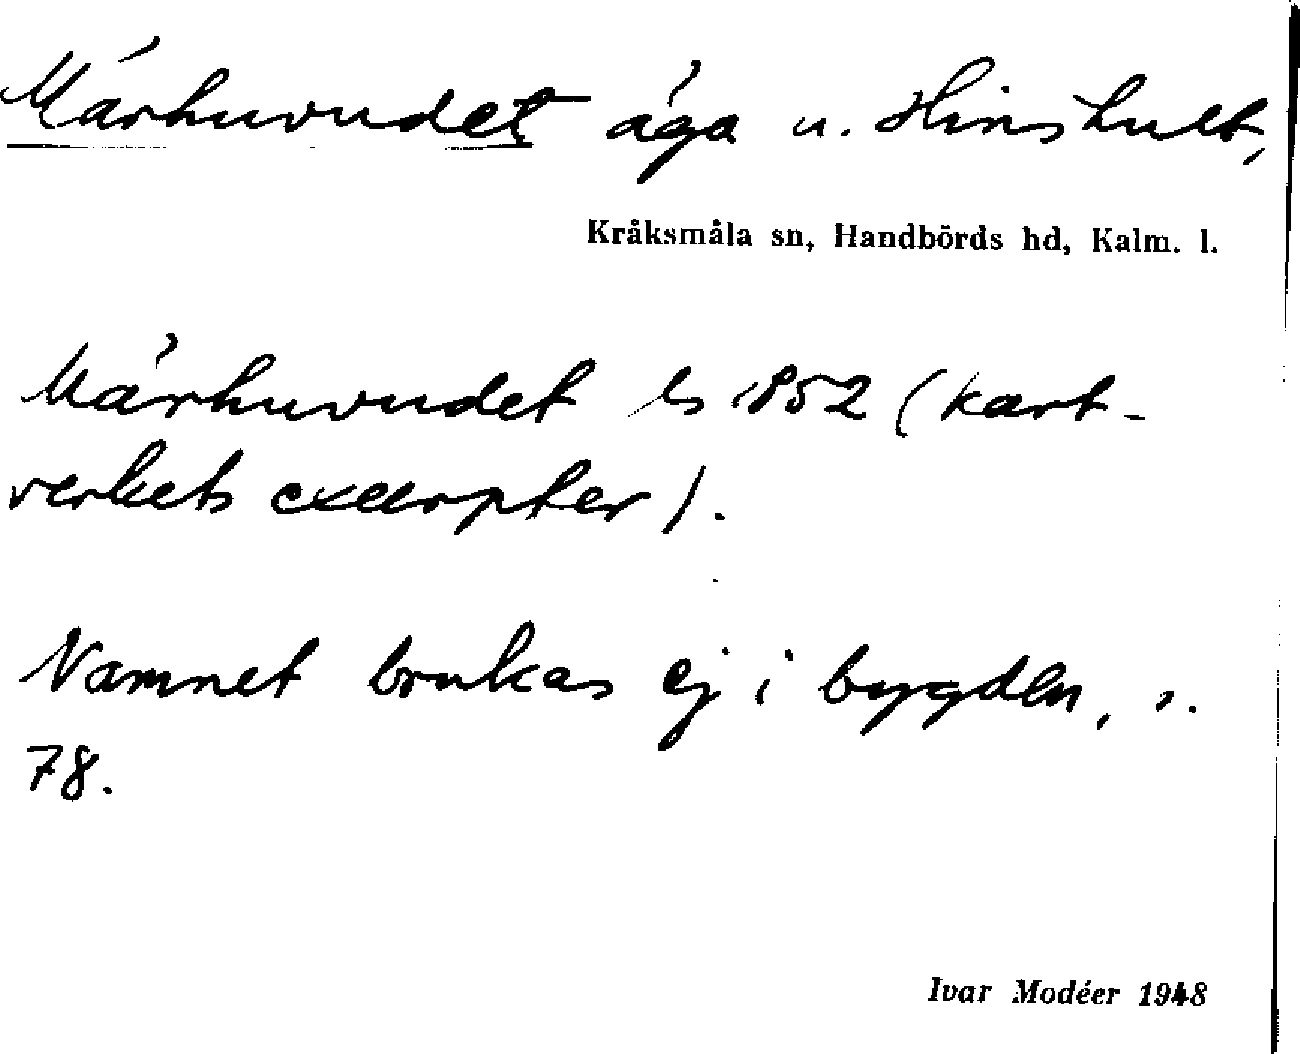 Mårhuvudet äga u. Hinshult,
Kråksmåla sn, Handbörds hd, Kalm. l.
Mårhuvudet ls 1852 (kart-
verkets excerpter).
Namnet brukas ej i bygden, s.
78.
Ivar Modéer 1948